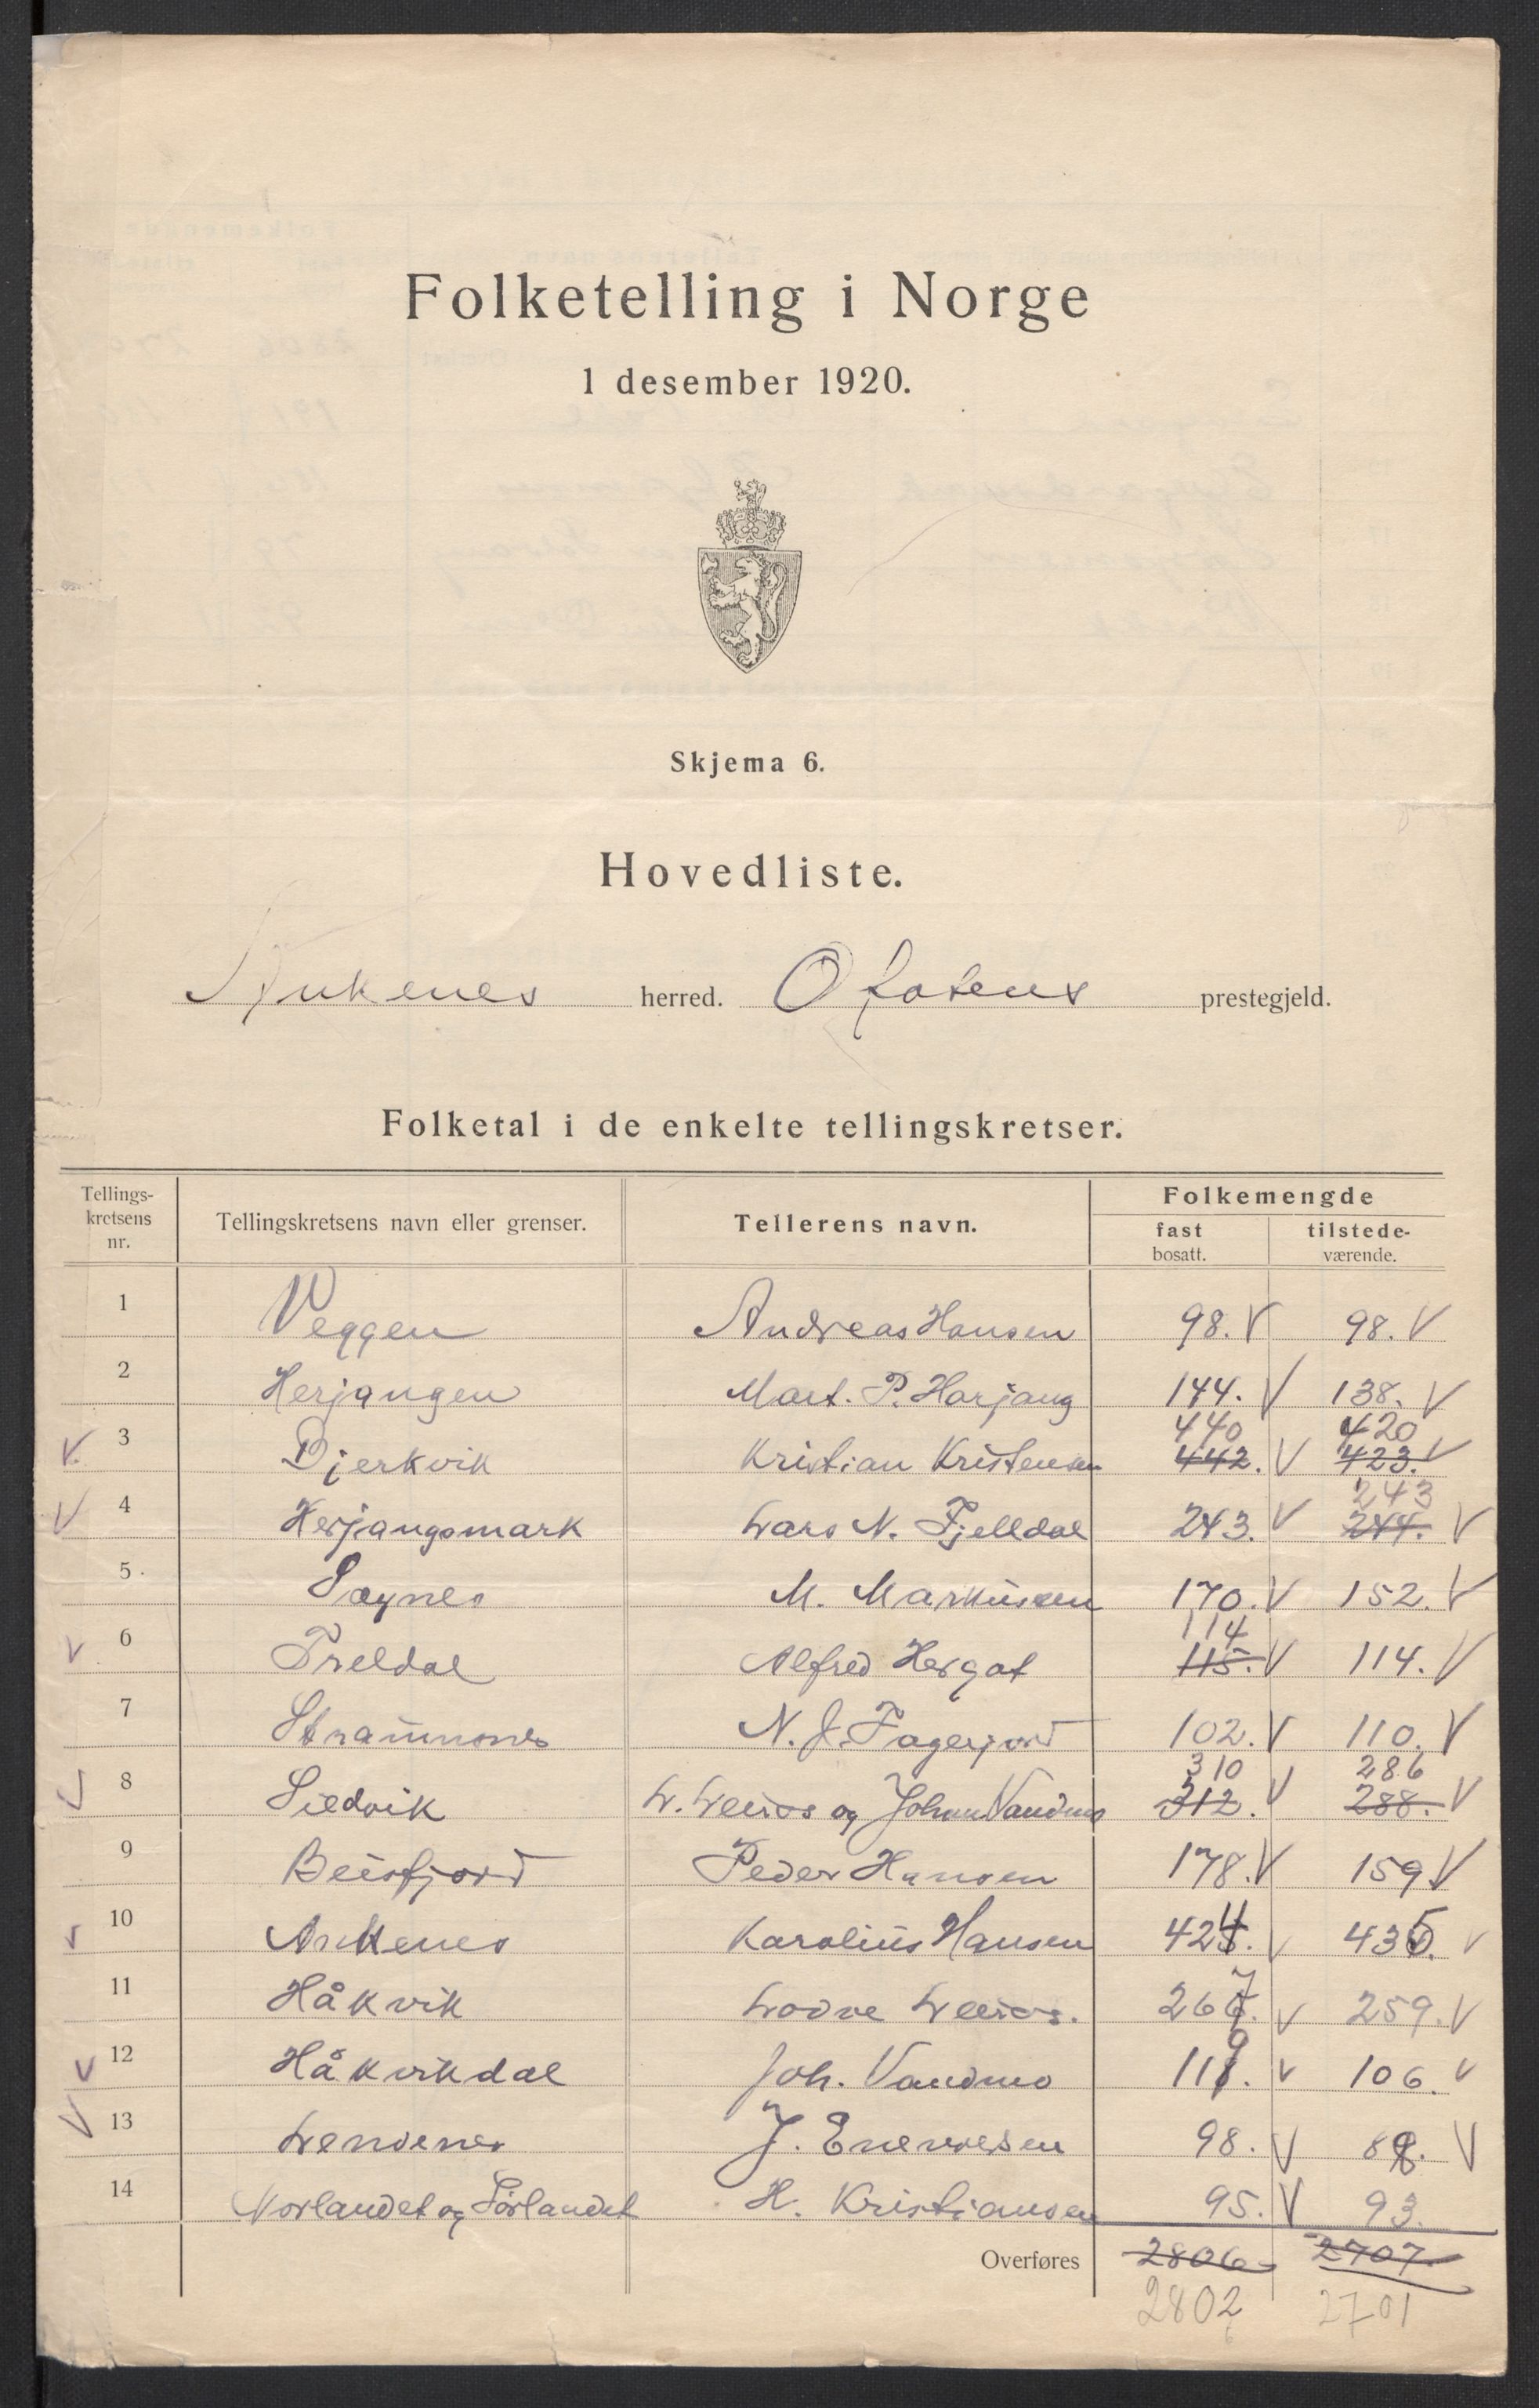 Folketelling i Norge
1 desember 1920.
Skjema 6.
Hovedliste.
Ankenes herred. Ofotens prestegjeld.
Folketal i de enkelte tellingskretser.
Tellings-kretsens nr. Tellingskretsens navn eller grenser. Tellerens navn. Folkemengde
fast bosatt. tilstede-værende.
1 Veggen Andreas Hansen 98. V 98. V
2 Herjangen Mart. P. Harjang 144. V 138. V
440 420
V. 3 Bjerkvik Kristian Kristensen 442. V 423. V
243
V 4 Herjangsmark Lars N. Fjelldal 243. V 244. V
5. Søgnes M. Markussen 170. V 152. V
114
V 6 Treldal Alfred Hergot 115. V 114. V
7 Straumsnes N. J. Fagerjord 102. V 110. V
310 286
V 8 Sildvik L. Leiros og Johan Vandmo 312. V 288. V
9 Beisfjord Peder Hansen 178. V 159 V
V 10 Ankenes Karolius Hansen 424. V 435. V
11 Håkvik Lodve Leiros. 267. V 259. V
V 12 Håkvikdal Joh. Vandmo 119. V 106. V
V 13 Lenvenes J. Enevoldsen 98. V 88. V
14 Norlandet og Sørlandet H. Kristiansen 95. V 93.
Overføres 2806 2707.
2802 2701